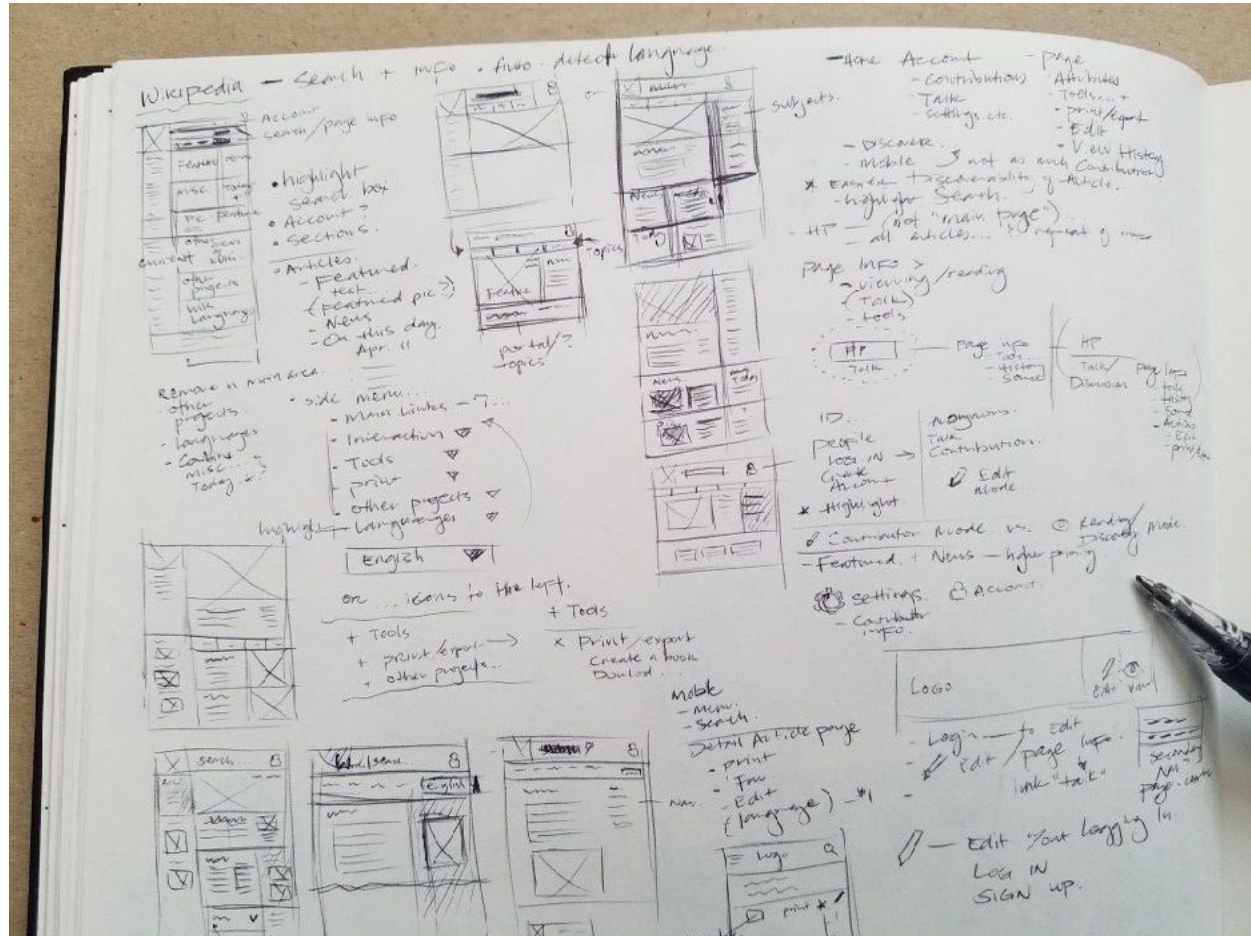 Wikipedia — Search + info • Auto detect language
Account
search/page info
Feature
News
misc.
Today
+
pic
Feature
other
current
other
projects
Wiki
Language
• highlight
search box
• Account?
• Sections.
• Articles.
- Featured.
text.
(Featured pic?)
- News
- On this day.
Apr. 11
or
subjects.
News
Today
topics
Feature
portal/?
topics
Remove in main area.
- other
projects.
- Languages
- Combine
misc...
Today + ?
• side menu...
• Main Links — 7...
• Interaction
• Tools
• print
• other projects
highlight — Languages
English
or ... icons to the left.
+ Tools
+ print/export →
+ other projects...
+ Tools
x Print/export
Create a book
Downlod...
News
Today
- Home
Account
- Contributions
- Talk
- settings etc.
- page
Attributes
- Tools... +
- print/export
- Edit
- View History
- Discover..
- Mobile
not as much Contribution
* Easier Discoverability of Article.
- highlight Search.
- HP — (not "main page")
- all articles...
page Info >
- viewing/reading
- (Talk)
- tools
HP
Talk
page info
Tools
- History
Source
HP
Talk/
Discussion
page info
- talk
- History
- Actions
- Edit
ID...
profile
LOG IN →
Create
Account
* Highlight
Anonymous.
Talk
Contribution.
Edit
Mode..
Contributor Mode vs. Reading/
Discovery Mode.
- Featured + News — higher priority
settings. Account.
- Contributor
info.
Mobile
- menu.
- search.
Detail Article page
• print
• Fav
- Edit
(language) — #1
LOGO
edit view
- Login — to Edit
Edit / page info.
link "talk"
Secondary
Nav
— Edit w/out Logging In.
LOG IN
SIGN UP.
search...
8
Wiki/sear..
English
8
8
Nav.
Logo
print